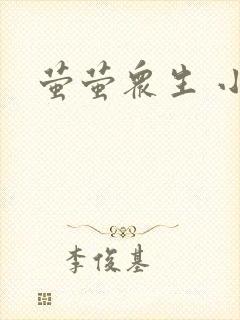 萤萤众生 小
李俊基